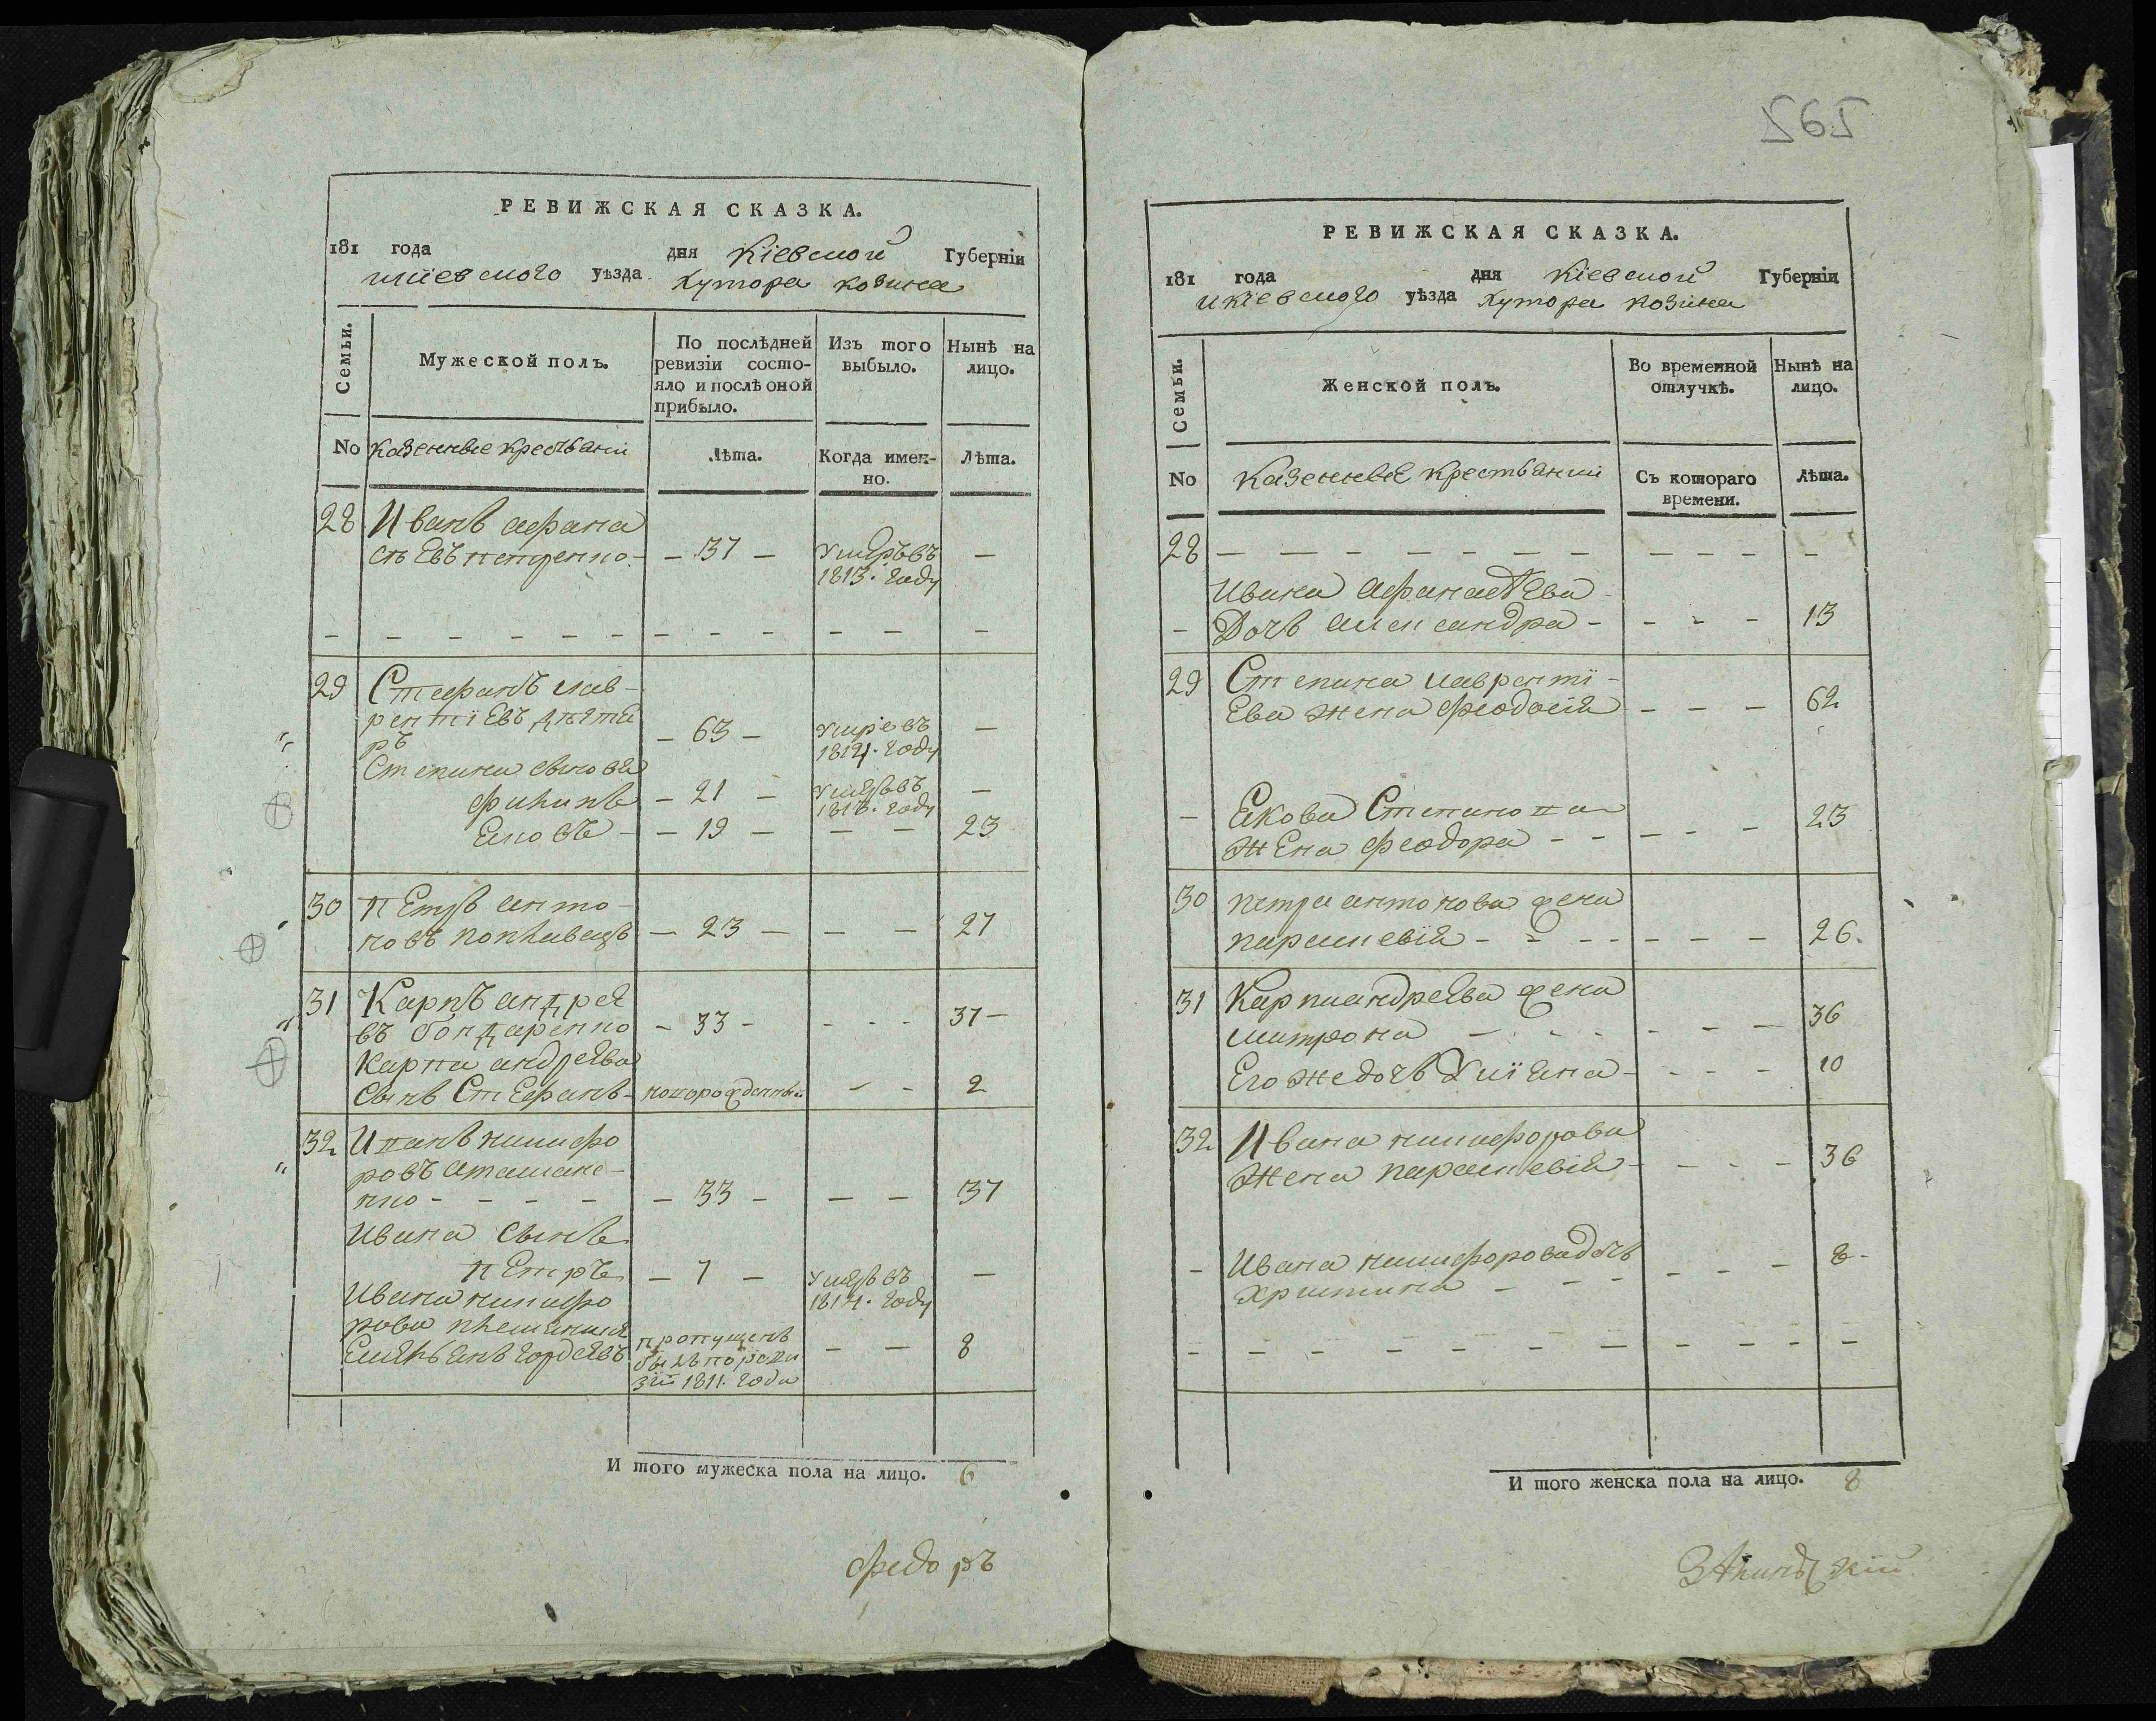 РЕВИЖСКАЯ СКАЗКА.
181 года дня Кіевской Губерніи
икіевского уѣзда Хутора козина
Семьи. Мужеской полъ. По послѣдней ревизіи состо-яло и послѣ оной прибыло. Изъ того выбыло. Нынѣ на лицо.
No казенные крестьяни Лѣта. Когда имен-но. Лѣта.
28 Иванъ афана
сьевъ петренко - 37 - умеръ въ 1813. году -
- - - - - - - - - - - -
29 Стефанъ лав-
рентіевъ дктя
ръ - 63 - умре въ 1814. году -
Степана сынова
филипъ - 21 - умеръ въ 1813. году -
Яковъ - - 19 - - - 23
30 петръ анто-
новъ поплавецъ - 23 - - - 27
31 Карпъ андрея
въ бондаренко - 33 - - - - 37 -
Карпа андреява
сынъ Стефанъ - новорожденный - - 2
32 Иванъ никифо
ровъ аташане-
нко - - - - - 33 - - - 37
Ивана сынъ
петръ - 7 - умеръ въ 1814. году -
Ивана никифо
рова племяникъ
Емяльянъ гордеявъ пропущенъ былъ по реви зіи 1811. года - - 8
И того мужеска пола на лицо. 6
федоръ
292
РЕВИЖСКАЯ СКАЗКА.
181 года дня Кіевской Губерніи
икіевского уѣзда Хутора козина
Семьи. Женской полъ. Во временной отлучкѣ. Нынѣ на лицо.
No Казенные крестьянки Съ котораго времени. Лѣта.
28 - - - - - - - - - - - -
Ивана афанасьева
- Дочь александра - - - - 13
29 Степана лавренті-
ева жена феодосія - - - 62
- Якова Степанова
жена феодора - - - - - 23
30 петра антонова жена
параскевія - - - - - - - 26.
31 Карпа андреява жена
митрона - - - - - - 36
Его же дочь уліяна - - - - 10
32 Ивана никифорова
жена параскевія - - - - 36
- Ивана никифорова дочь
христина - - - - - - 8 -
- - - - - - - - - - - -
И того женска пола на лицо. 8